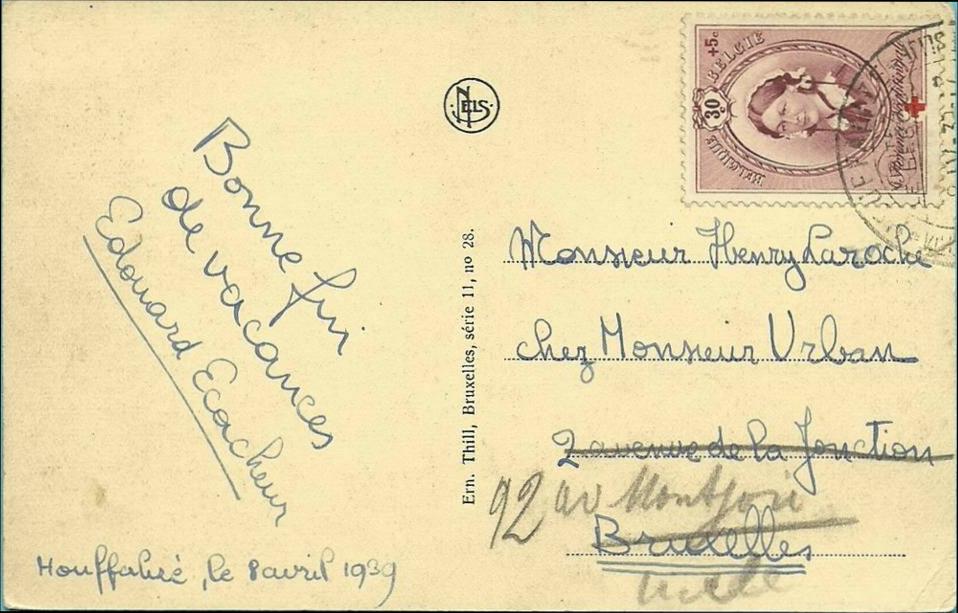 Bonne fin
de vacances
Edouard Ecacheur
Houffalize, le 8 avril 1939
NELS
Ern. Thill, Bruxelles, série 11, nº 28.
BELGIE
+5c
30
BELGIQUE
Monsieur Henry Laroche
chez Monsieur Urban
2 avenue de la Jonction
92 av Montjoie
Bruxelles
Uccle